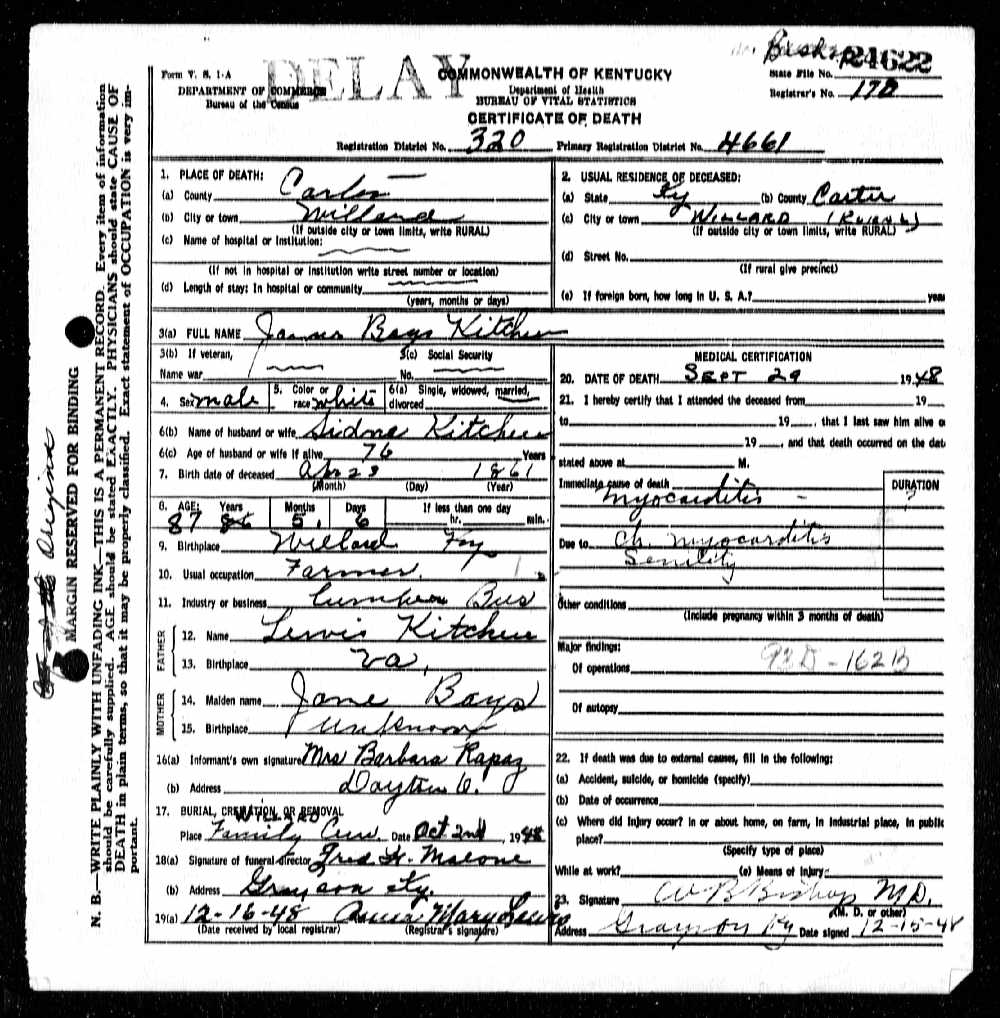 Bishop 24622
Form V. S. 1-A DELAY COMMONWEALTH OF KENTUCKY State File No.
DEPARTMENT OF COMMERCE Department of Health Registrar's No. 170
Bureau of the Census BUREAU OF VITAL STATISTICS
CERTIFICATE OF DEATH
Registration District No. 320 Primary Registration District No. 4661
1. PLACE OF DEATH:
(a) County Carter
(b) City or town Willard
(If outside city or town limits, write RURAL)
(c) Name of hospital or institution:
(If not in hospital or institution write street number or location)
(d) Length of stay: In hospital or community
(years, months or days)
2. USUAL RESIDENCE OF DECEASED:
(a) State Ky (b) County Carter
(c) City or town WILLARD (RURAL)
(If outside city or town limits, write RURAL)
(d) Street No.
(If rural give precinct)
(e) If foreign born, how long in U. S. A.? years
3(a) FULL NAME James Bays Kitchen
3(b) If veteran, 3(c) Social Security
Name war No.
4. Sex male 5. Color or race white 6(a) Single, widowed, married, divorced
6(b) Name of husband or wife Sidne Kitchen
6(c) Age of husband or wife if alive 76 Years
7. Birth date of deceased Apr 23 1861
(Month) (Day) (Year)
8. AGE: Years Months Days If less than one day
87 86 5 6 hr. min.
9. Birthplace Willard Ky
10. Usual occupation Farmer.
11. Industry or business Lumber Bus
FATHER
12. Name Lewis Kitchen
13. Birthplace Va.
MOTHER
14. Maiden name Jane Bays
15. Birthplace unknown
16(a) Informant's own signature Mrs Barbara Rapaz
(b) Address Dayton O.
17. BURIAL, CREMATION, OR REMOVAL
WILLARD
Place Family Cem. Date Oct 2nd, 1948
18(a) Signature of funeral director Fred H. Malone
(b) Address Grayson Ky.
19(a) 12-16-48 Anna Mary Lewis
(Date received by local registrar) (Registrar's signature)
MEDICAL CERTIFICATION
20. DATE OF DEATH SEPT 29 1948
21. I hereby certify that I attended the deceased from 19
to 19, that I last saw him alive o
19, and that death occurred on the dat
stated above at M.
Immediate cause of death DURATION
myocarditis - ?
Due to Ch. myocarditis
Senility
Other conditions
(Include pregnancy within 3 months of death)
Major findings:
Of operations 93D-162B
Of autopsy
22. If death was due to external causes, fill in the following:
(a) Accident, suicide, or homicide (specify)
(b) Date of occurrence
(c) Where did injury occur? In or about home, on farm, in industrial place, in public
place?
(Specify type of place)
While at work? (e) Means of Injury:
23. Signature W B Bishop M.D.
(M. D. or other)
Address Grayson Ky Date signed 12-15-48
MARGIN RESERVED FOR BINDING
N. B.—WRITE PLAINLY WITH UNFADING INK—THIS IS A PERMANENT RECORD. Every item of information
should be carefully supplied. AGE should be stated EXACTLY. PHYSICIANS should state CAUSE OF
DEATH in plain terms, so that it may be properly classified. Exact statement of OCCUPATION is very im-
portant.